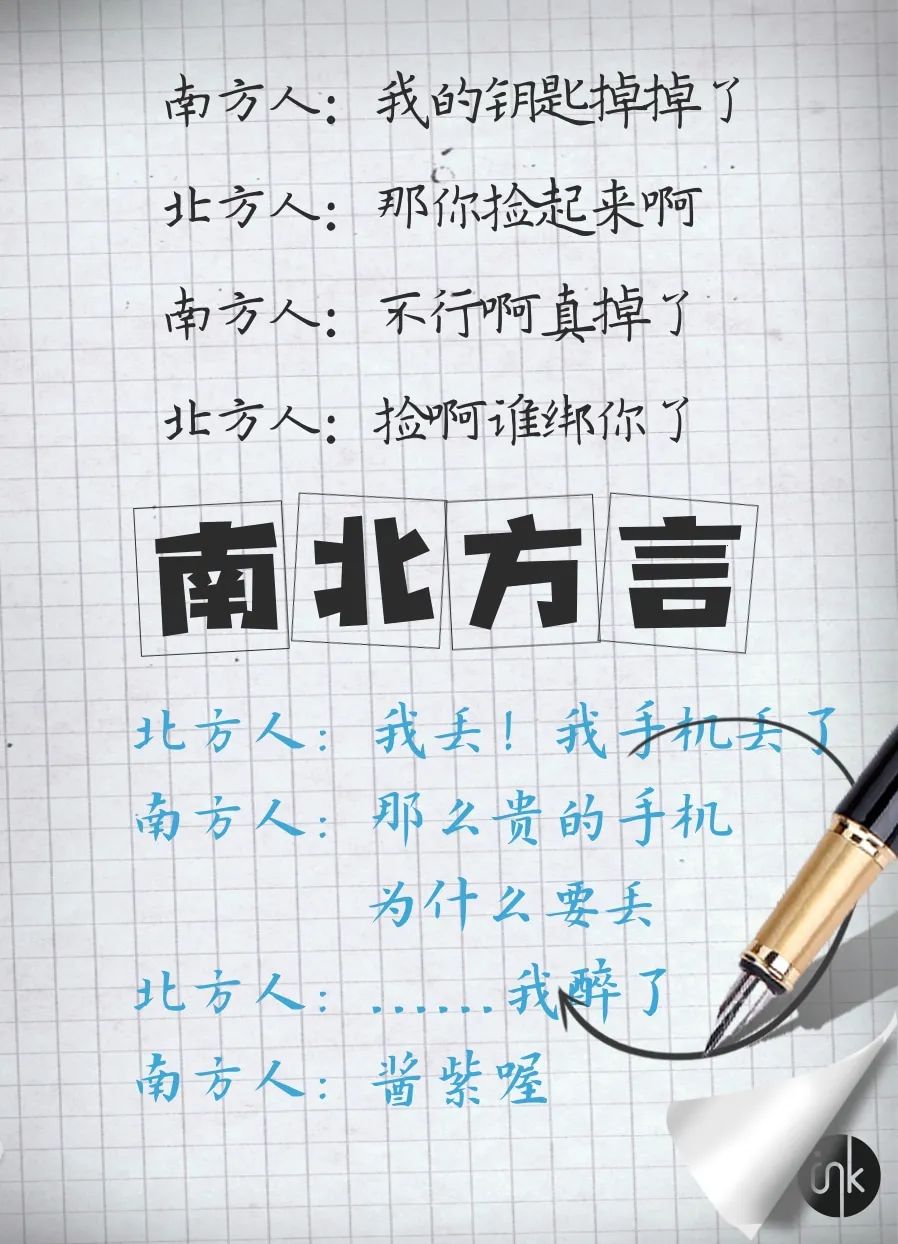 南方人：我的钥匙掉掉了
北方人：那你捡起来啊
南方人：不行啊真掉了
北方人：捡啊谁绑你了
南北方言
北方人：我丢！我手机丢了
南方人：那么贵的手机
为什么要丢
北方人：......我醉了
南方人：酱紫喔
ink